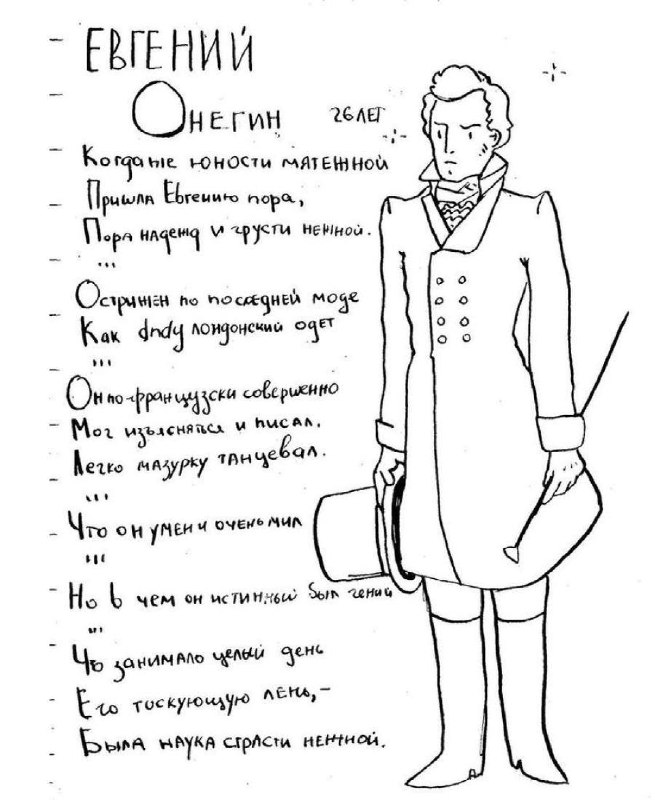 ЕВГЕНИЙ
ОНЕГИН 26 ЛЕТ
Когда же юности мятежной
Пришла Евгению пора,
Пора надежд и грусти нежной.
...
Острижен по последней моде
Как dndy лондонский одет
...
Он по-французски совершенно
Мог изъясняться и писал,
Легко мазурку танцевал.
...
Что он умен и очень мил
...
Но в чем он истинный был гений
...
Чъ занимало целый день
Его тоскующую лень,-
Была наука страсти нежной.